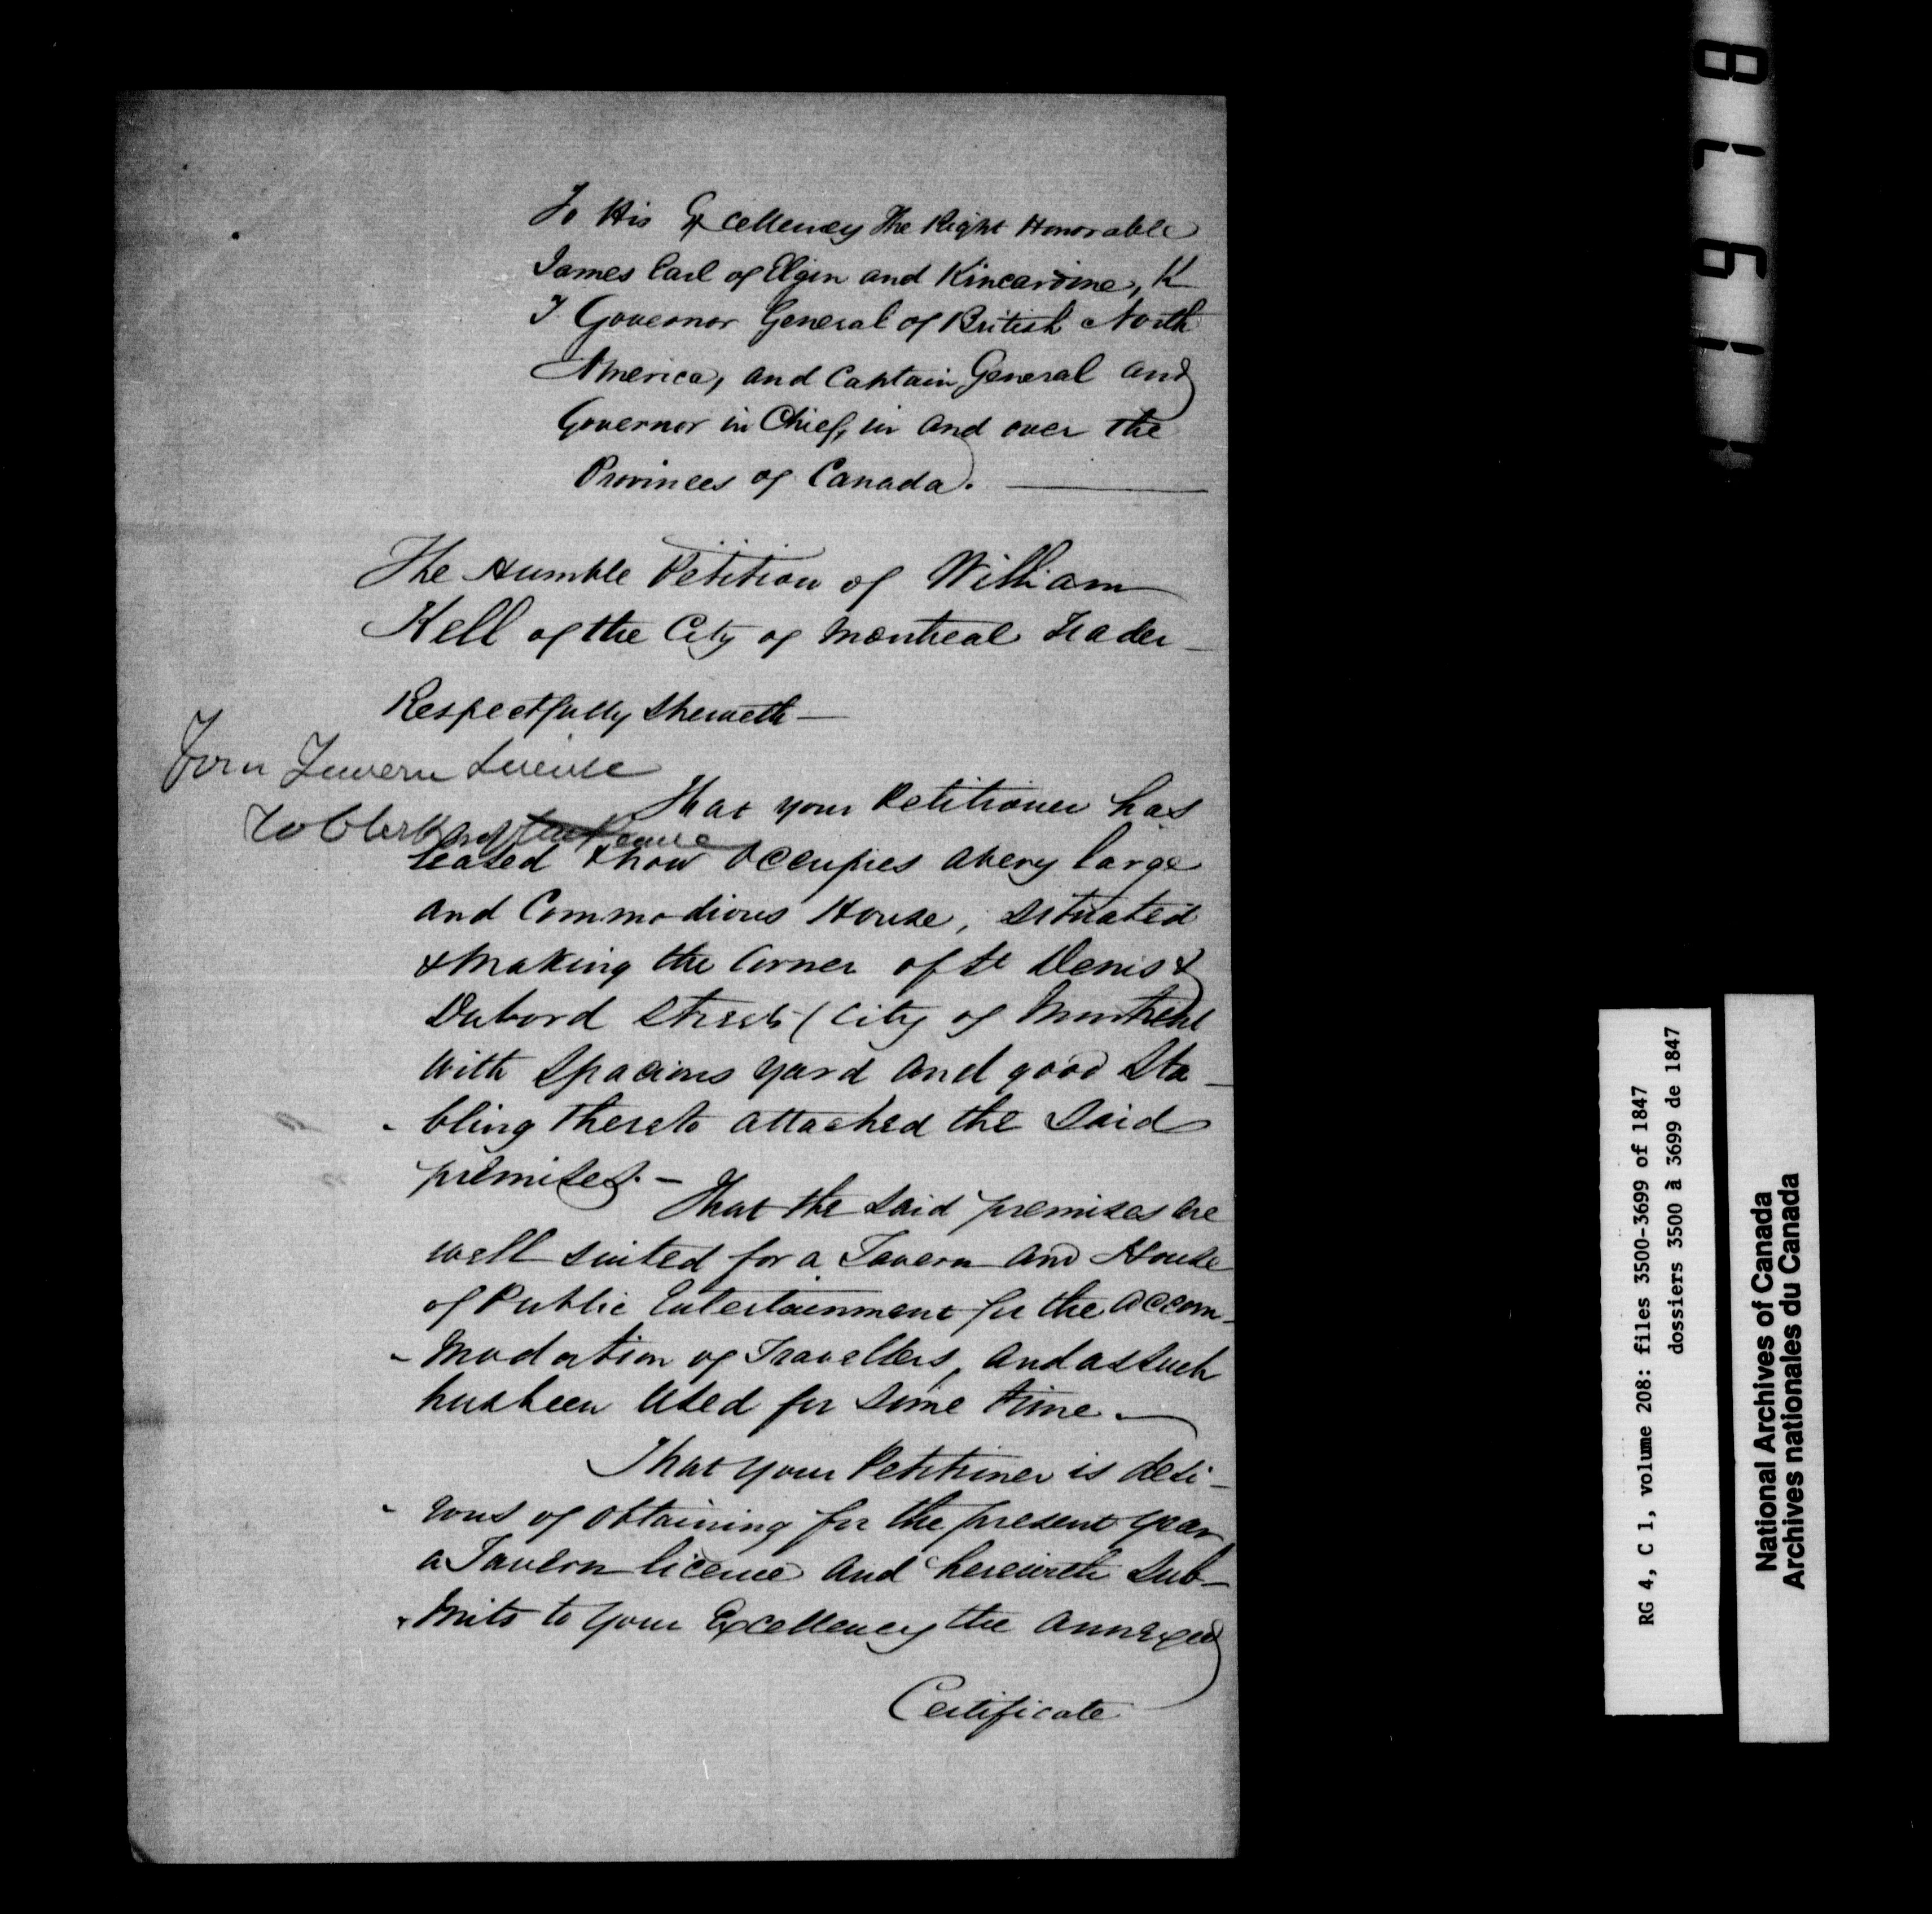 To His Excellency The Right Honorable
James Earl of Elgin and Kincardine, K
T Governor General of British North
America, and Captain General and
Governor in Chief, in and over the
Provinces of Canada.
The Humble Petition of William
Kell of the City of Montreal Trader
Respectfully Sheweth
Tavern
To Clerk of the Peace
That your Petitioner has
leased & now occupies a very large
and Commodious House, Situated
& making the Corner of St Denis &
Dubord Streets (City of Montreal
with Spacious yard and good Sta-
-bling thereto attached the Said
premises. -
That the Said premises are
well suited for a Tavern and House
of Public Entertainment for the accom-
-modation of Travellers, and as such
has been Used for Some time.
That your Petitioner is desi-
-rous of obtaining for the present year
a Tavern licence and herewith Sub-
-mits to your Excellency the annexed
Certificate
RG 4, C 1, volume 208: files 3500-3699 of 1847
dossiers 3500 à 3699 de 1847
National Archives of Canada
Archives nationales du Canada